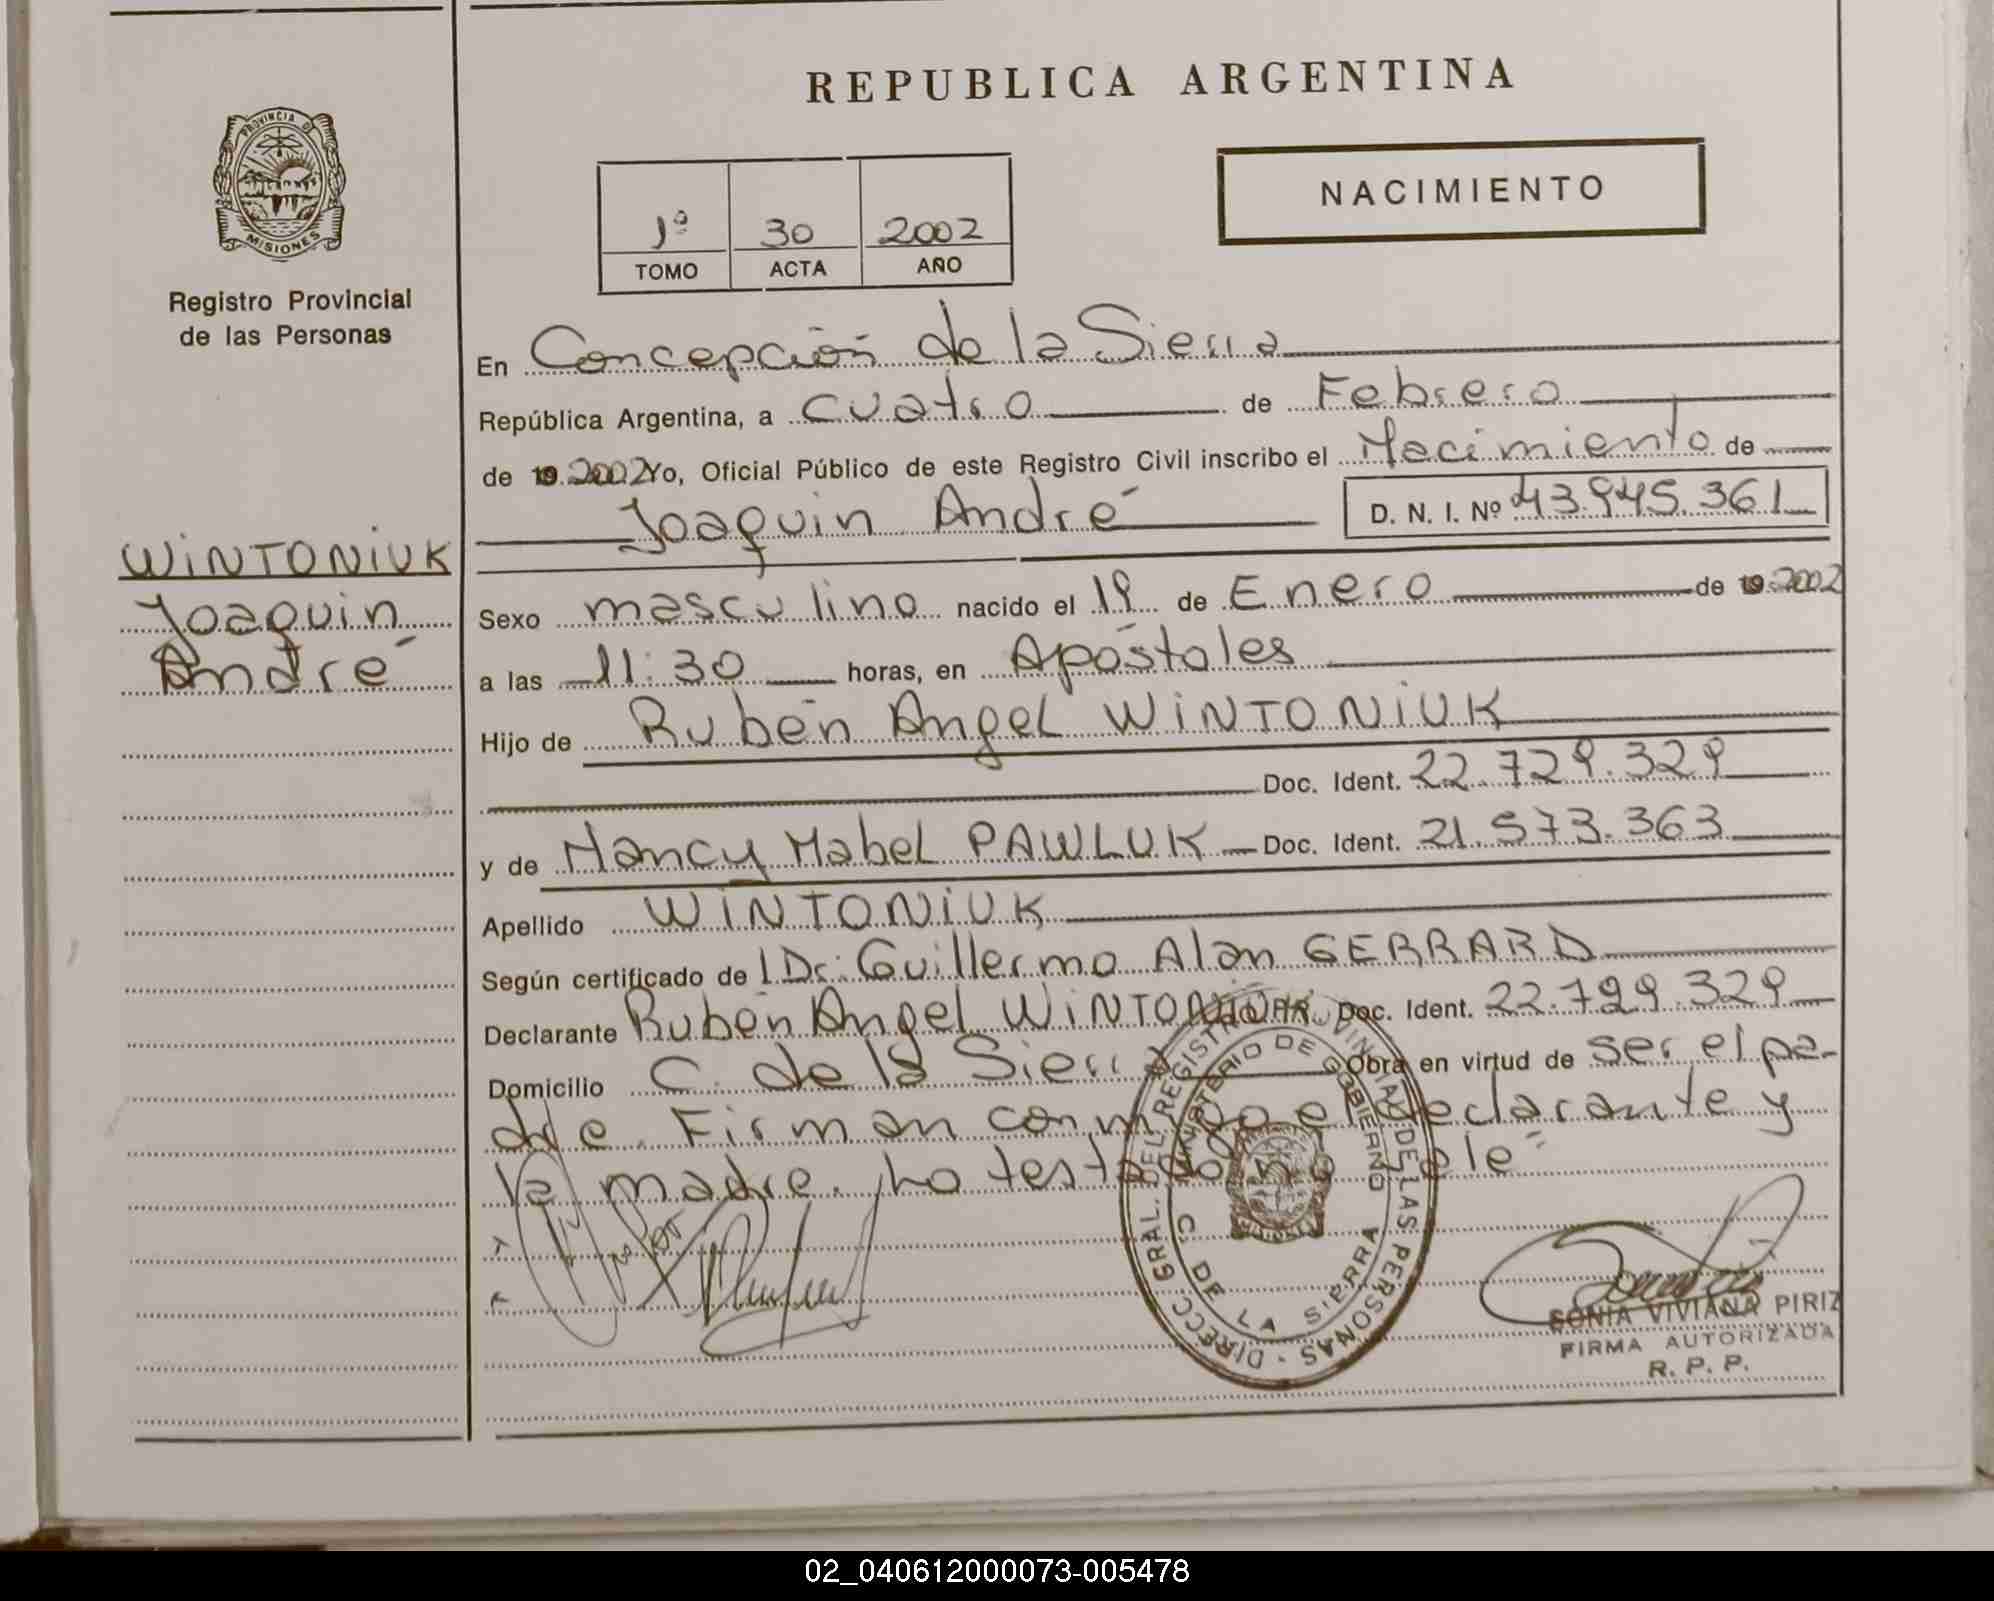 REPUBLICA ARGENTINA
PROVINCIA DE
MISIONES
Registro Provincial
de las Personas
NACIMIENTO
1º 30 2002
TOMO ACTA AÑO
En Concepción de la Sierra
República Argentina, a cuatro de Febrero
de 19 2002 Yo, Oficial Público de este Registro Civil inscribo el Nacimiento de
Joaquin André D. N. I. Nº 43.945.361
WiNTONiUK
Joaquin
André
Sexo masculino nacido el 19 de Enero de 19 2002
a las 11:30 horas, en Apóstoles
Hijo de Rubén Angel WiNTONiUK
Doc. Ident. 22.729.329
y de Nancy Mabel PAWLUK Doc. Ident. 21.573.363
Apellido WiNTONiUK
Según certificado de l Dr. Guillermo Alan GERRARD
Declarante Rubén Angel WiNTONiUK Doc. Ident. 22.729.329
Domicilio C. de la Sierra Obra en virtud de ser el pa-
dre. Firman conmigo el declarante y
la madre.
DIRECC. GRAL. DEL REGISTRO PROVINCIAL DE LAS PERSONAS
MINISTERIO DE GOBIERNO
C. DE LA SIERRA
SONIA VIVIANA PIRIZ
FIRMA AUTORIZADA
R. P. P.
02_040612000073-005478